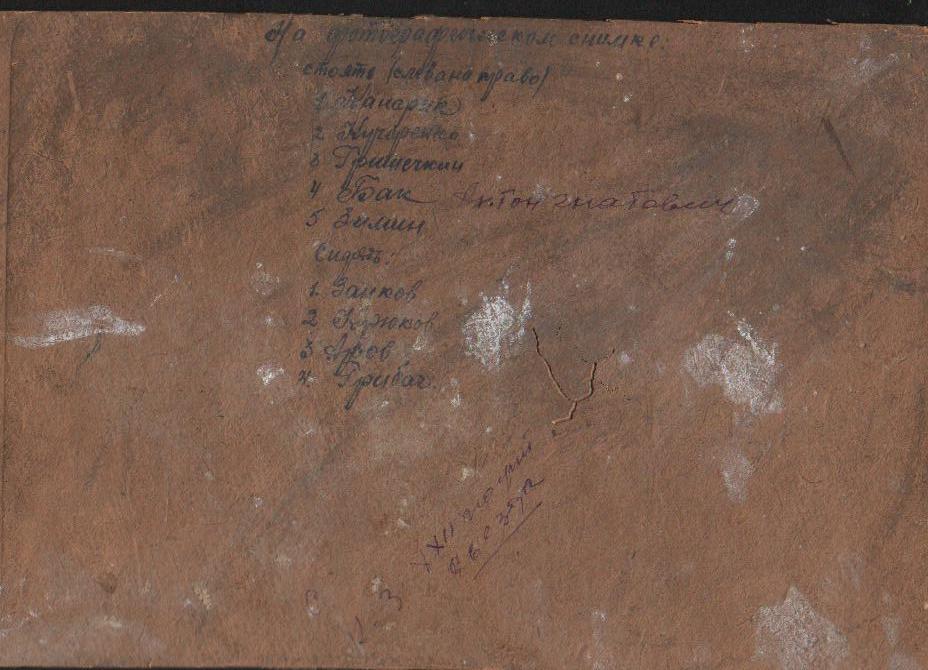 На фотографическом снимке:
стоять (слева на право)
1 Канарик
2 Кучеренко
3 Гришечкин
4 Бак Антон гнатович
5 Зимин
Сидять:
1. Занков
2 Крюков
3 Аров
4 Грибач.